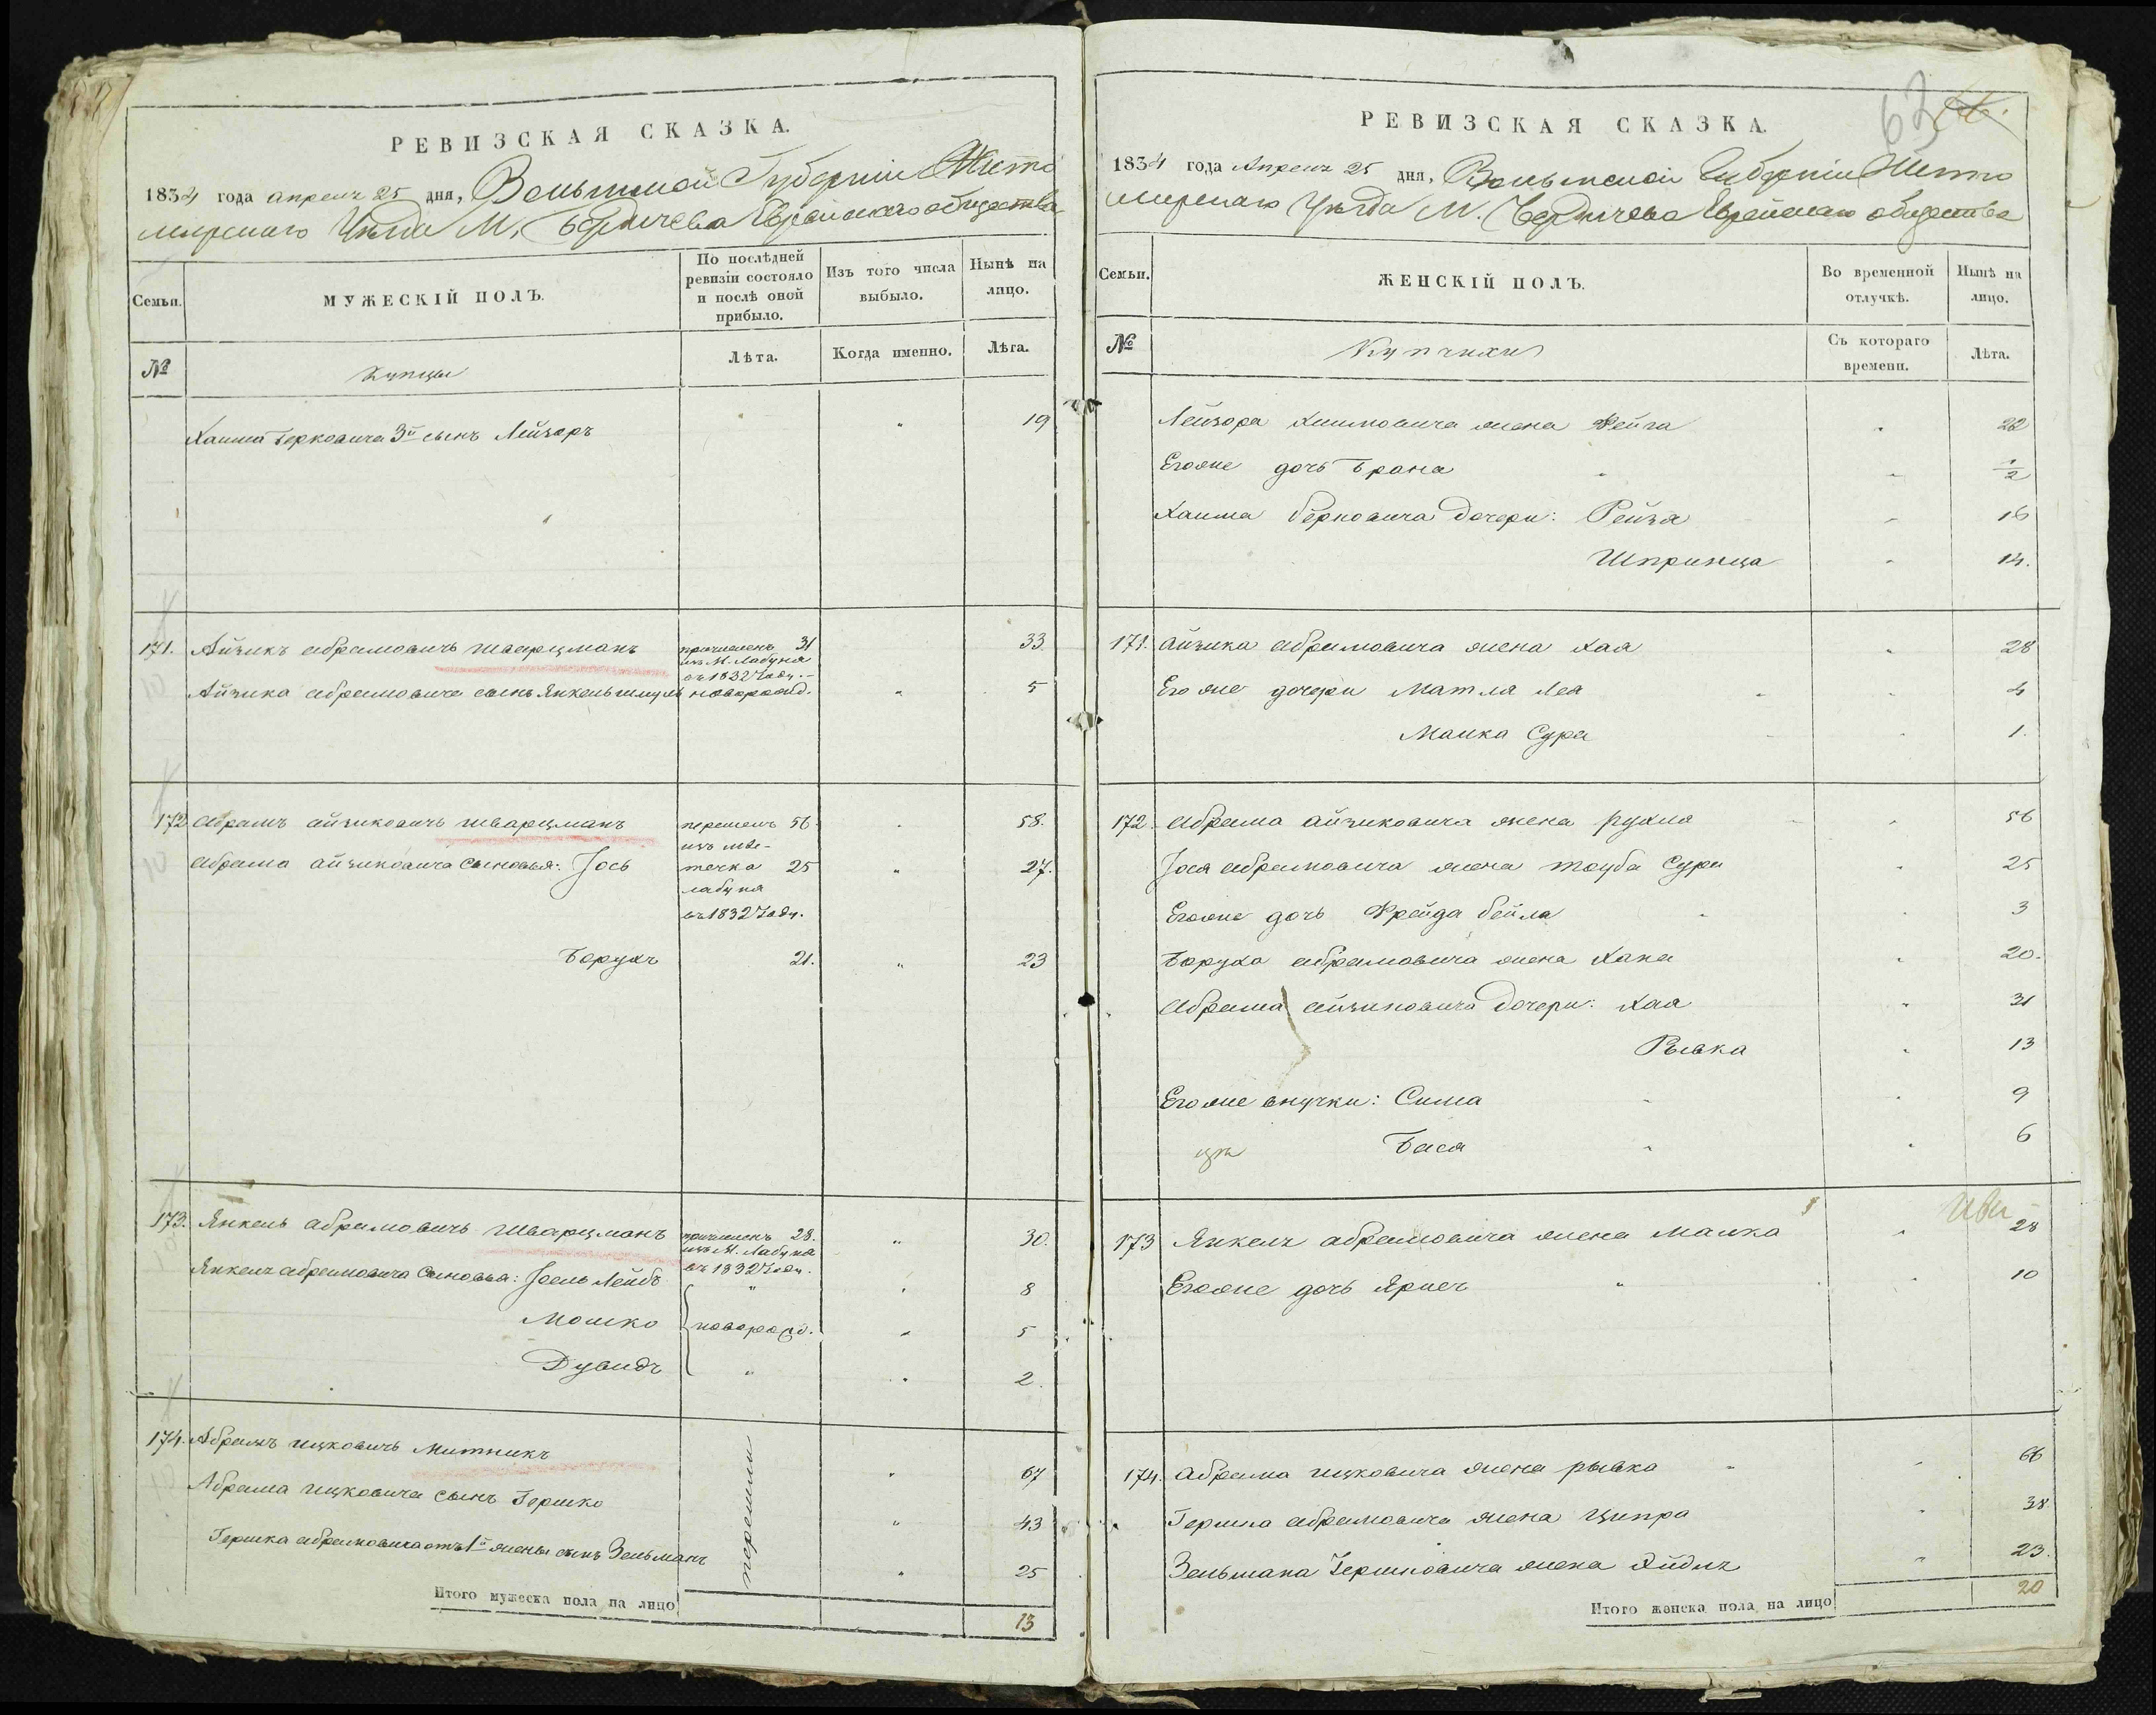 РЕВИЗСКАЯ СКАЗКА.
1834 года апреля 25 дня, Волынской Губернии Жито
мирскаго Уезда М. Бердичева Еврейскаго общества
Семьи.
МУЖЕСКІЙ ПОЛЪ.
По послѣдней ревизіи состояло и послѣ оной прибыло.
Изъ того числа выбыло.
Нынѣ на лицо.
№
Купцы
Лѣта.
Когда именно.
Лѣта.
Хаима Берковича 3й сынъ Лейзоръ " 19
171. Айзикъ Абрамовичъ Шварцманъ причисленъ 31 33
изъ М. Лабуня
въ 1832 году.
Айзика Абрамовича сынъ Янкель Шмуль новорожд. " 5
172 Абрамъ Айзиковичъ Шварцманъ перешелъ 56. 58.
изъ мѣс-
Абрама Айзиковича сыновья: Іось течка 25 " 27.
лабуня
въ 1832 году.
Борухъ 21. " 23
173. Янкель Абрамовичъ Шварцманъ причисленъ 28. " 30.
изъ М. Лабуня
въ 1832 году.
Янкеля Абрамовича сыновья: Іоель Лейбъ " " 8
Мошко новорожд. " 5
Дувидъ " " 2.
174. Абрамъ Ицковичъ Митникъ " 67
перешли
Абрама Ицковича сынъ Гершко " 43
Гершка Абрамовича отъ 1й жены сынъ Зельманъ " 25
Итого мужеска пола на лицо 13
63
РЕВИЗСКАЯ СКАЗКА.
1834 года Апреля 25 дня, Волынской Губерніи Жито
мирскаго Уезда М. Бердичева Еврейскаго общества
Семьи.
ЖЕНСКІЙ ПОЛЪ.
Во временной отлучкѣ.
Нынѣ на лицо.
№
Купчихи
Съ котораго времени.
Лѣта.
Лейзора Хаимовича жена Фейга " 22
Егоже дочь Брана " 1/2
Хаима Берковича дочери: Рейзя " 16
Шпринца " 14.
171. Айзика Абрамовича жена Хая " 28
Егоже дочери Матля Лея " 4
Малка Сура " 1.
172. Абрама Айзиковича жена Рухля " 56
Іося Абрамовича жена Тауба Сура " 25
Егоже дочь Фрейда Бейла " 3
Боруха Абрамовича жена Хана " 20.
Абрама Айзиковича дочери: Хая " 31
Рывка " 13
Егоже внучки: Сима " 9
Бася " 6
173 Янкеля Абрамовича жена Малка " 28
Егоже дочь " 10
174. Абрама Ицковича жена Рывка " 66
Гершка Абрамовича жена Ципра " 38
Зельмана Гершковича жена " 23.
Итого женска пола на лицо 20